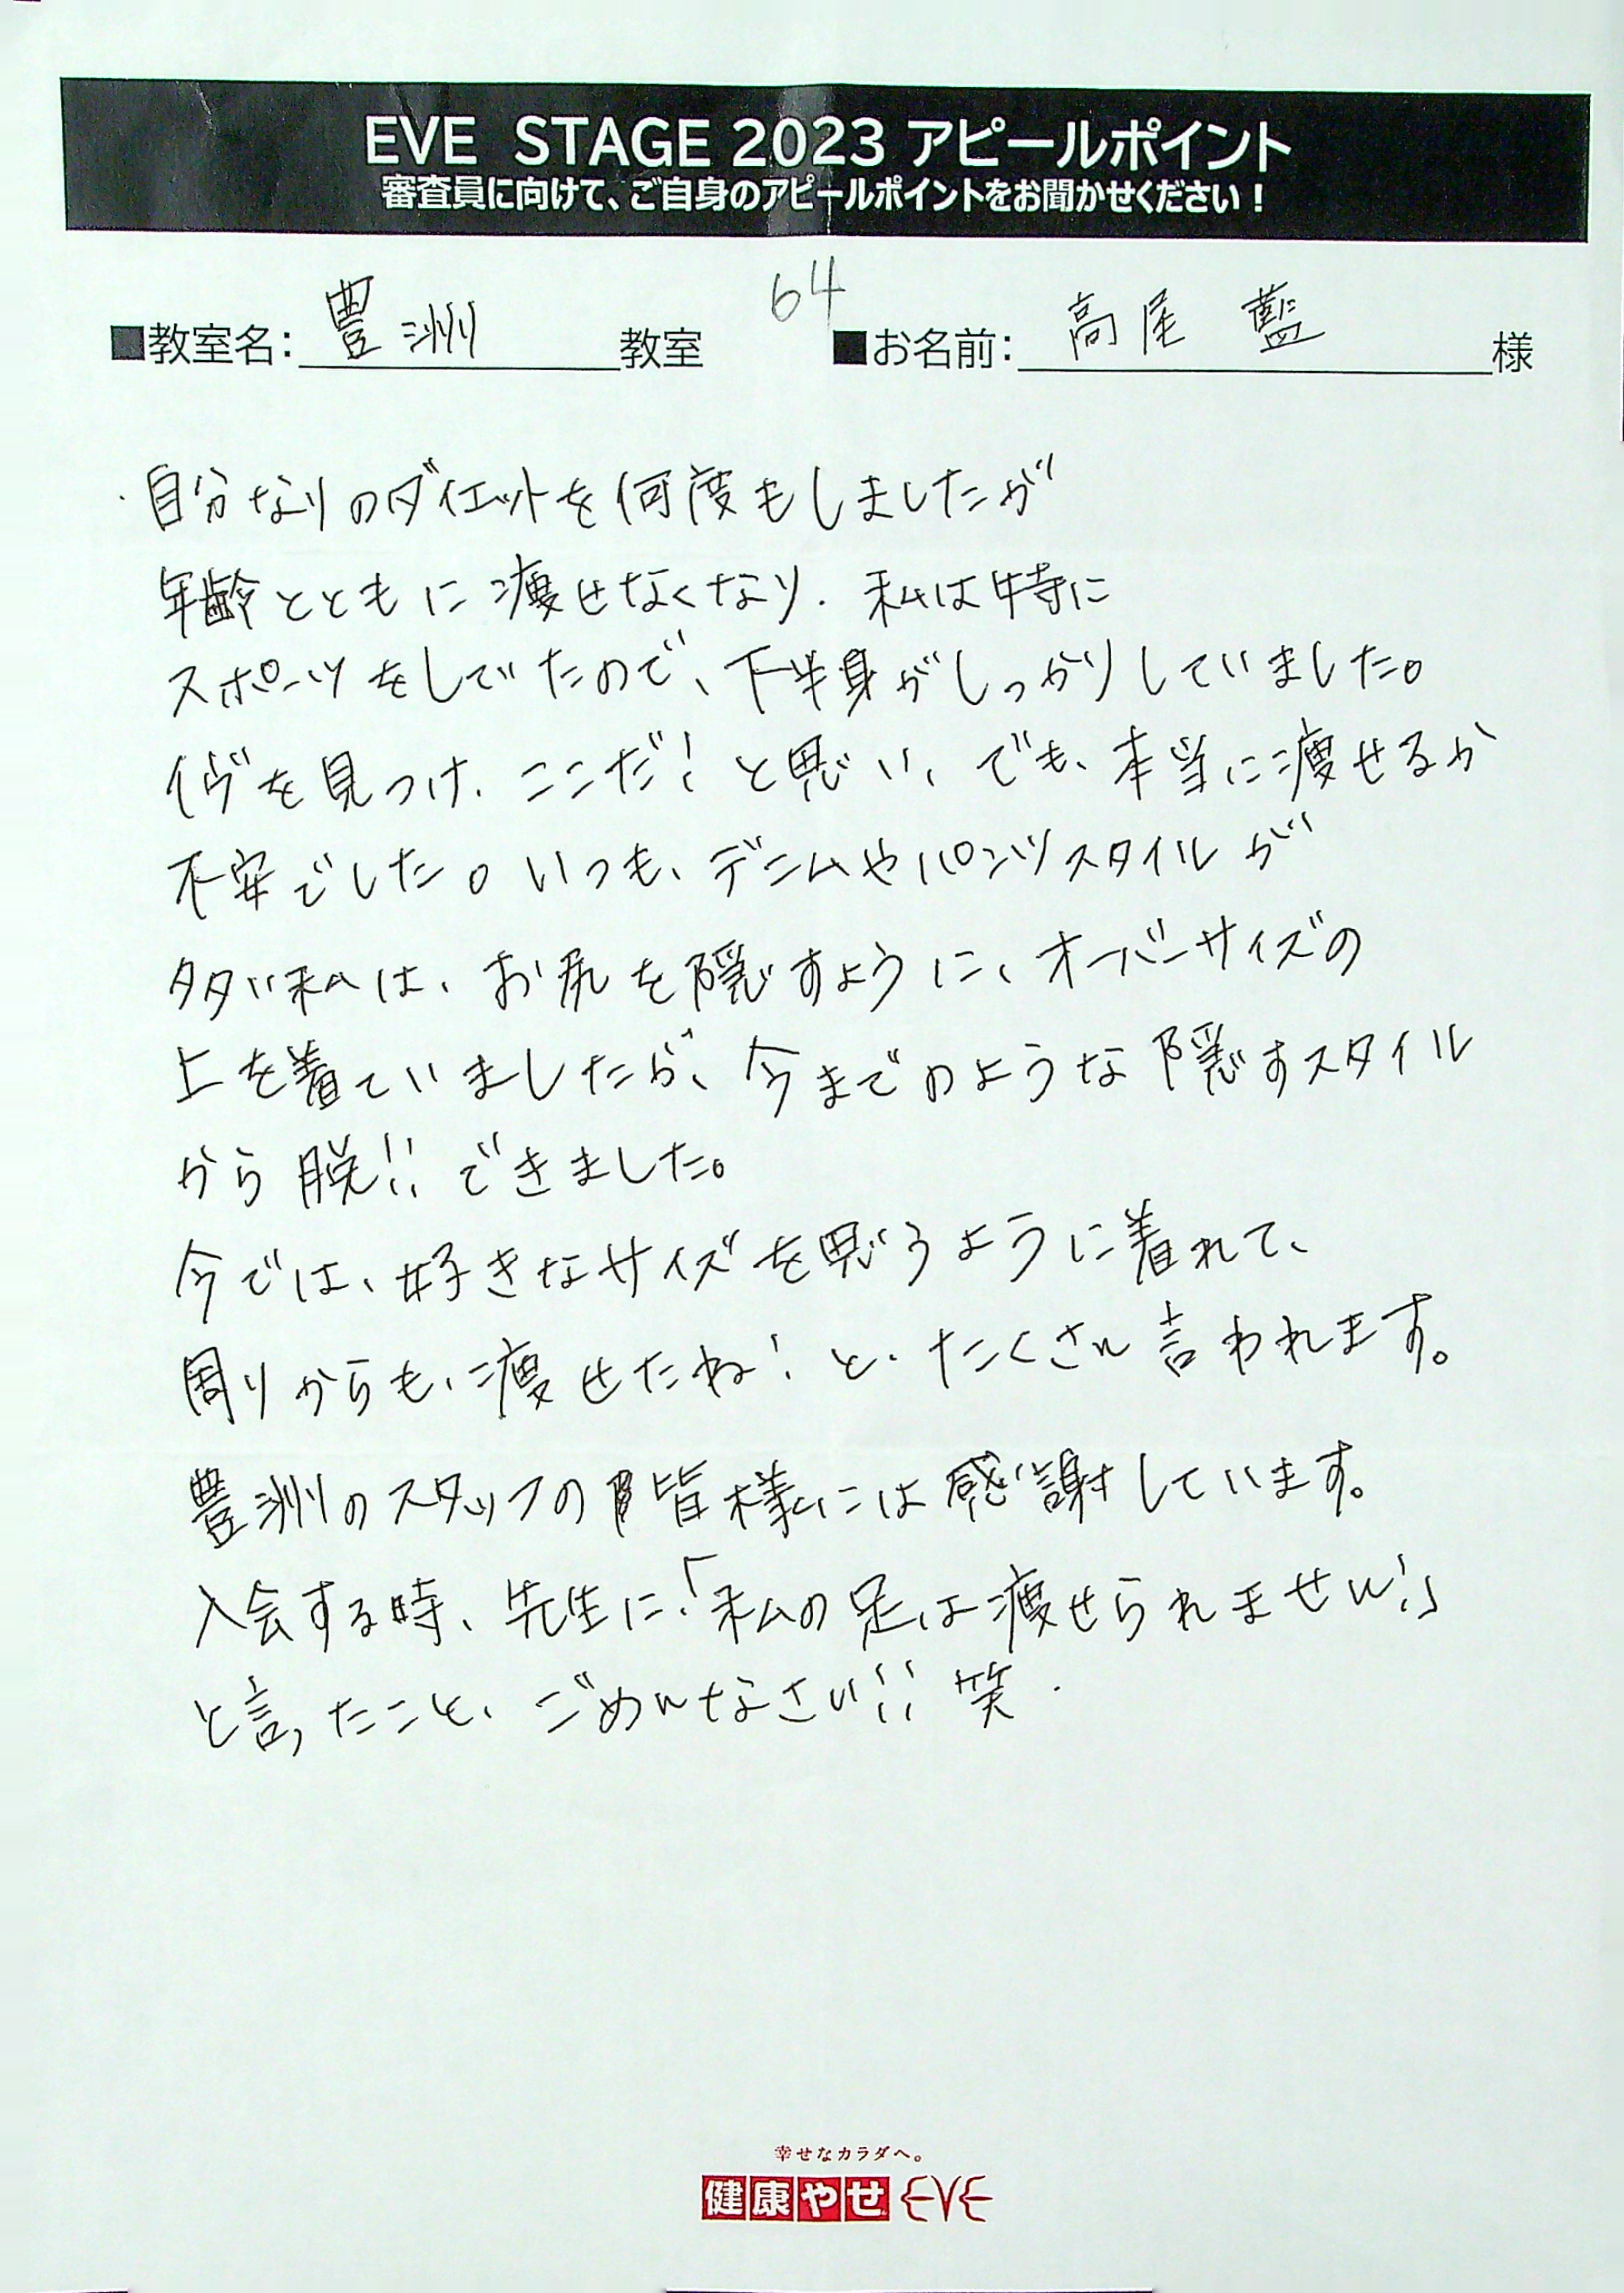 EVE STAGE 2023 アピールポイント
審査員に向けて、ご自身のアピールポイントをお聞かせください！
64
■教室名：豊洲教室 ■お名前：高尾 藍様
・自分なりのダイエットを何度もしましたが
年齢とともに痩せなくなり、私は特に
スポーツをしていたので、下半身がしっかりしていました。
イヴを見つけ、ここだ！と思い、でも、本当に痩せるか
不安でした。いつも、デニムやパンツスタイルが
多い私は、お尻を隠すように、オーバーサイズの
上を着ていましたが、今までのような隠すスタイル
から脱!!できました。
今では、好きなサイズを思うように着れて、
周りからも、痩せたね！と、たくさん言われます。
豊洲のスタッフの皆様には感謝しています。
入会する時、先生に！「私の足は痩せられません！」
と言ったこと、ごめんなさい!!笑.
幸せなカラダへ。
健康やせ EVE